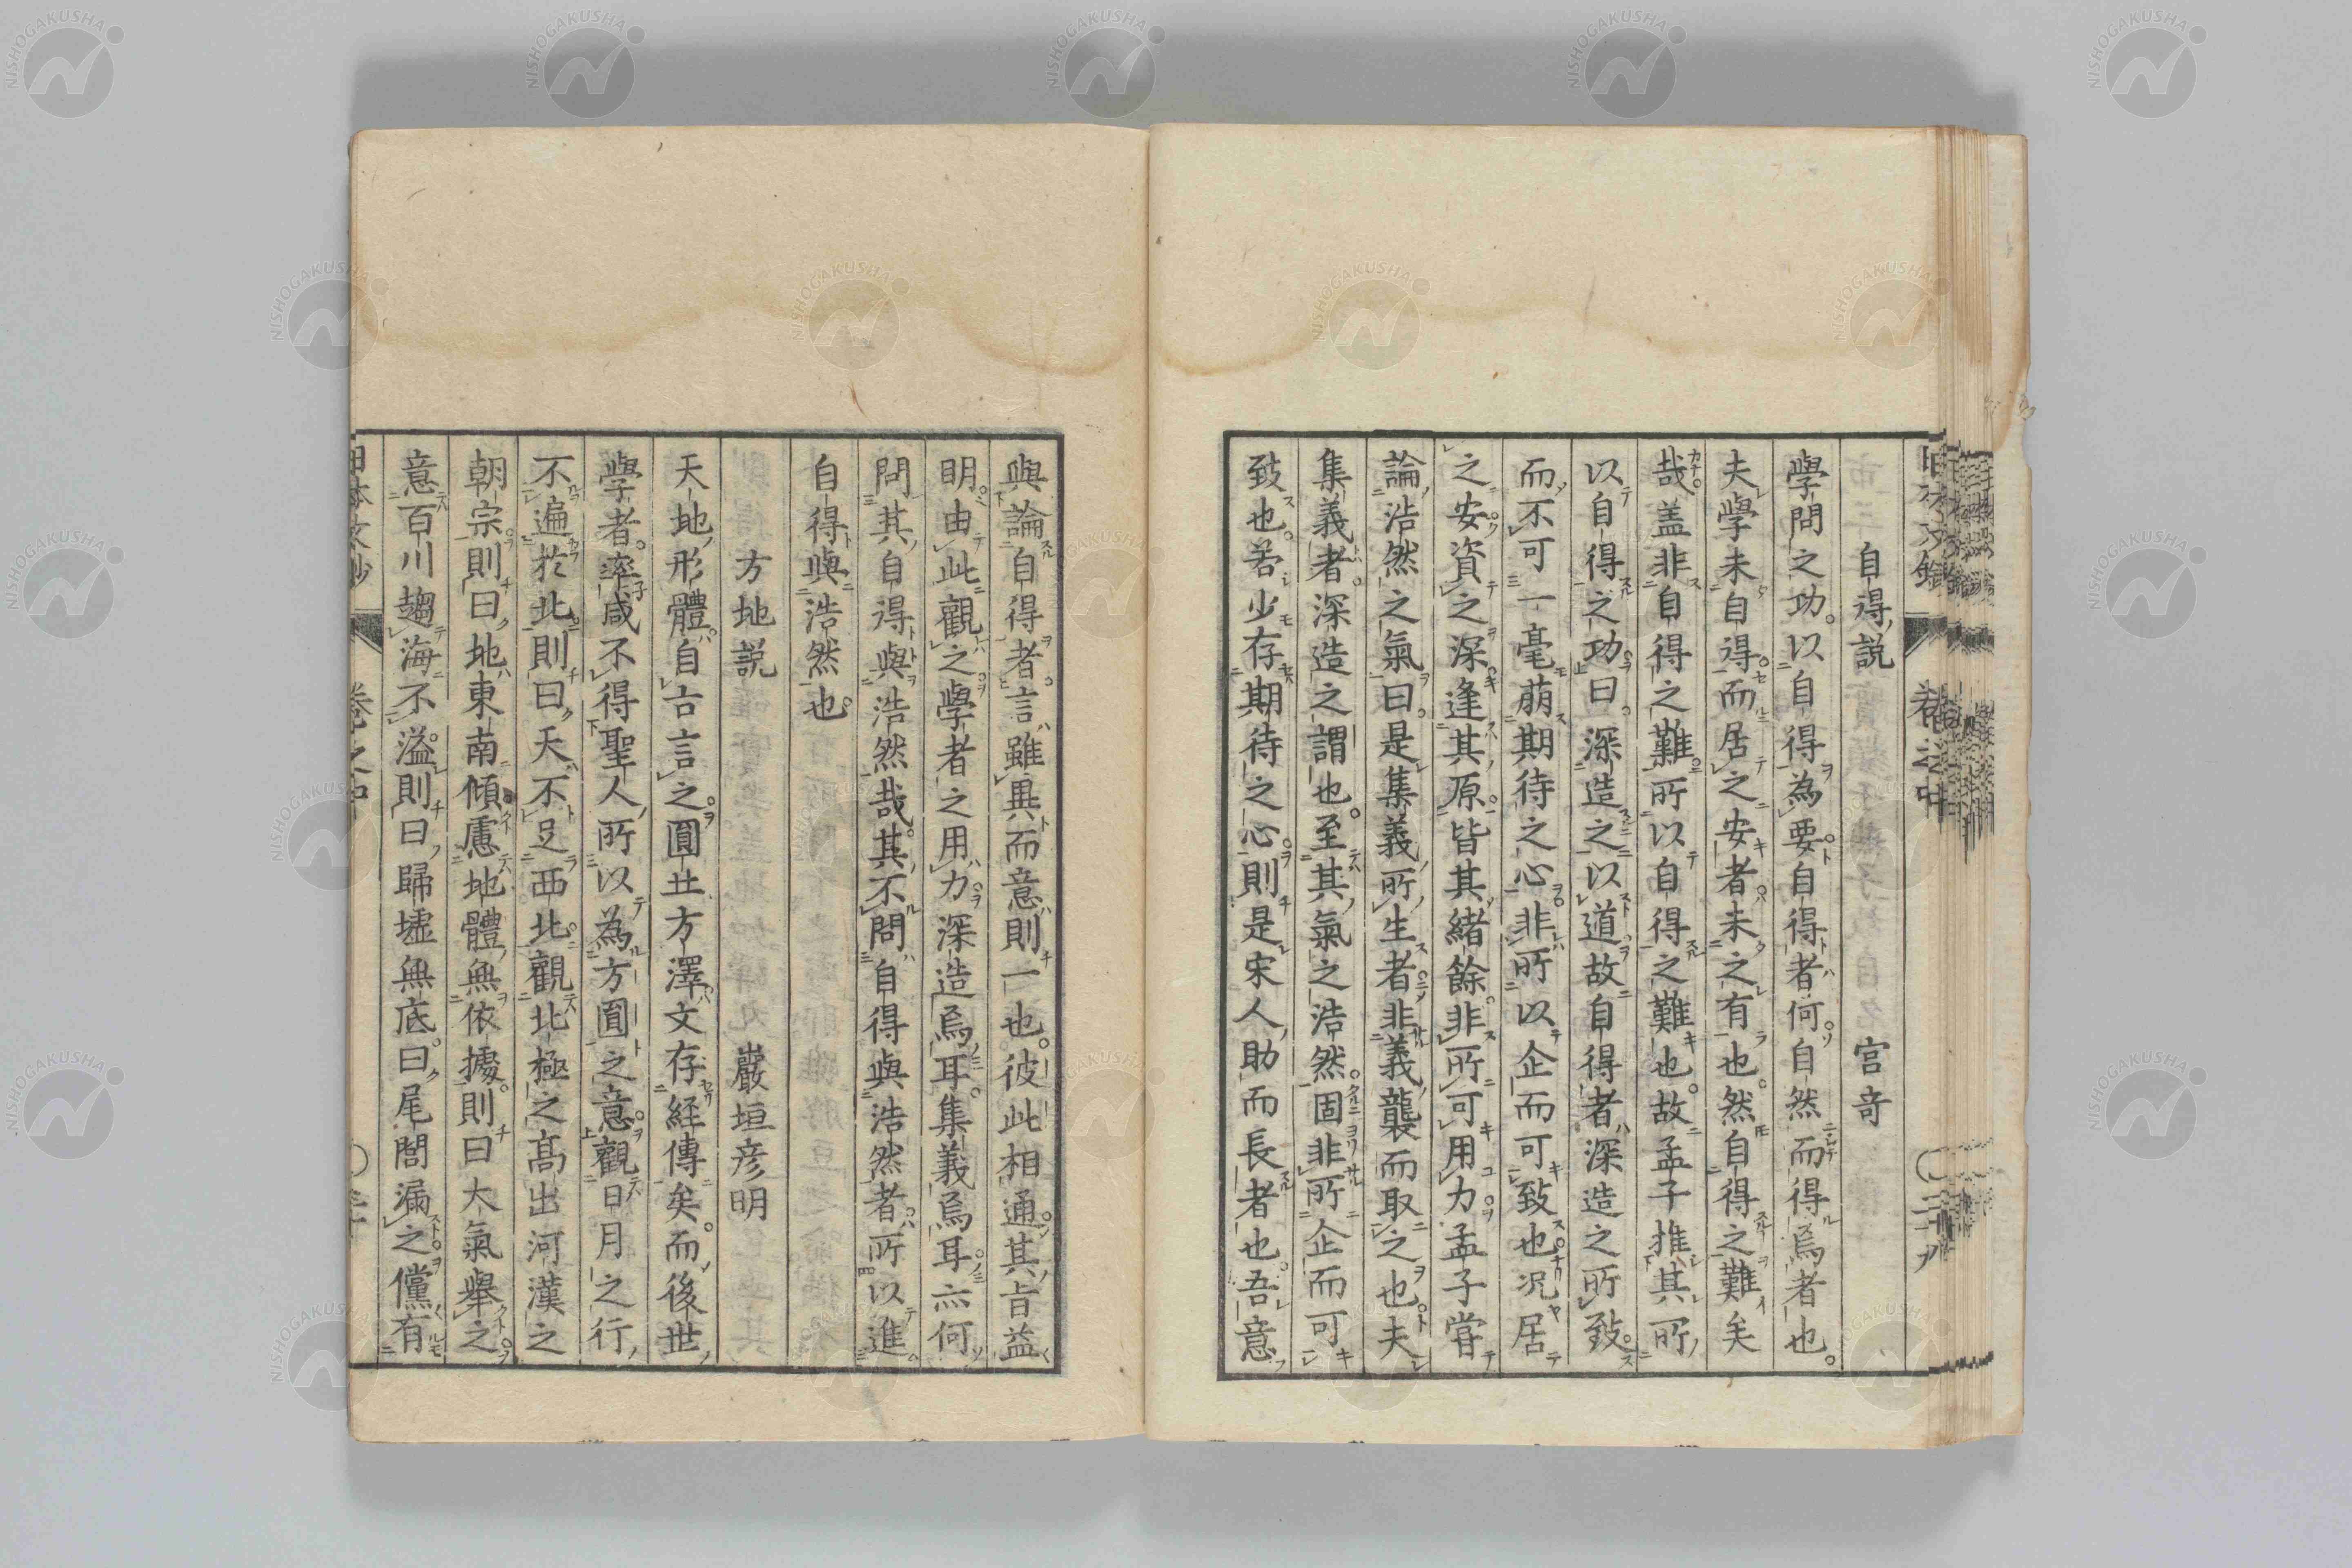 自得説　宮奇
學問之功。以自得為要。自得者何。自然而得焉者也。
夫學未自得。而居之安者。未之有也。然自得之難矣
哉。盖非自得之難。所以自得之難也。故孟子推其所
以自得之功。曰。深造之以道。故自得者。深造之所致。
而不可一毫萠期待之心。非所以企而可致也。况居
之安。資之深。逢其原。皆其緒餘。非所可用力。孟子嘗
論浩然之氣曰。是集義所生者。非義襲而取之也。夫
集義者。深造之謂也。至其氣之浩然。固非所企而可
致也。若少存期待之心。則是宋人助而長者也。吾意
與論自得者。言雖異而意則一也。彼此相通。其旨益
明。由此觀之。學者之用力。深造焉耳。集義焉耳。亦何
問其自得與浩然哉。其不問自得與浩然者。所以進
自得與浩然也。
方地説　巖垣彦明
天地形體。自古言之。圓丘方澤。文存経傳矣。而後世
學者。率咸不得聖人所以為方圓之意。觀日月之行
不遍於北。則曰。天不足西北。觀北極之髙出河漢之
朝宗。則曰。地東南傾。慮地體無依據。則曰大氣舉之。
意百川趨海不溢。則曰。歸墟無底。曰。尾閭漏之。儻有
巻之中